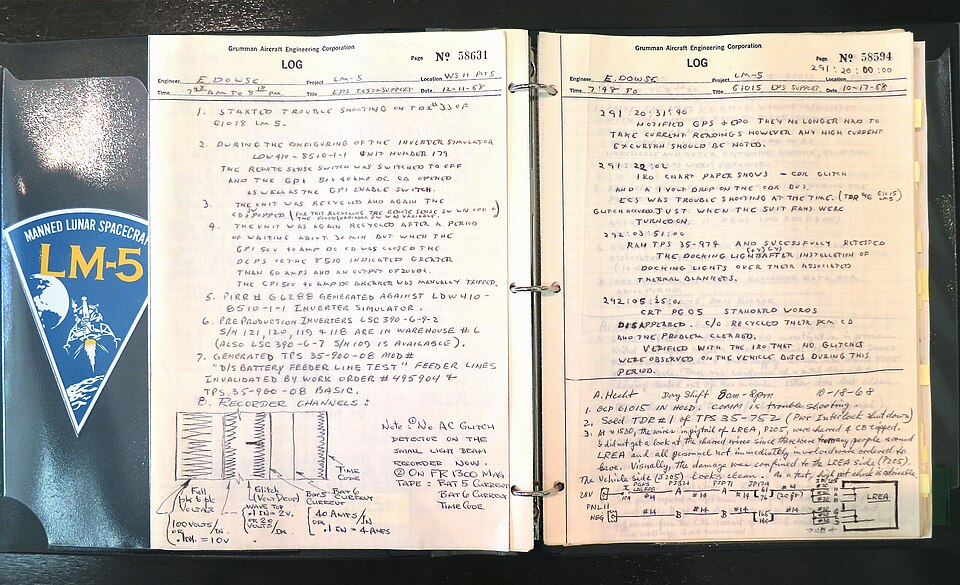 MANNED LUNAR SPACECRA
LM-5
Grumman Aircraft Engineering Corporation
LOG
Page Nº 58631
Engineer E. DOWSE Project LM-5 Location WS 11 PT5
Time AM TO PM. Title EPS TEST & SUPPORT Date 12-11-68
1. STARTED TROUBLE SHOOTING ON TDR # 33 OF
61018 LM 5.
2. DURING THE CONFIGURING OF THE INVERTER SIMULATOR
LDW 410-8510-1-1 UNIT NUMBER 179
THE REMOTE SENSE SWITCH WAS SWITCHED TO OFF
AND THE GPI 50V 40 AMP DC CB OPENED
AS WELL AS THE GPI ENABLE SWITCH.
3. THE UNIT WAS RECYCLED AND AGAIN THE
CB'S POPPED (FOR THIS RECYCLING THE REMOTE SENSE SW
4. THE UNIT WAS AGAIN RECYCLED AFTER A PERIOD
OF WAITING ABOUT 30 MIN BUT WHEN THE
GPI 50V 40 AMP DC CB WAS CLOSED THE
OF THE 8510 INDICATED GREATER
THAN 60 AMPS AND AN OUTPUT OF 20VDC.
THE GPI 50V 40 AMP DC BREAKER WAS MANUALLY TRIPPED.
5. PIRR # GL288 GENERATED AGAINST LDW410-
8510-1-1 INVERTER SIMULATOR.
6. PRE PRODUCTION INVERTERS LSC 390-6-9-2
S/N 121, 120, 119 & 118 ARE IN WAREHOUSE # 6
(ALSO LSC 390-6-7 S/N 109 IS AVAILABLE).
7. GENERATED TPS 35-900-08 MOD #
"D/S BATTERY FEEDER LINE TEST" FEEDER LINES
INVALIDATED BY WORK ORDER # 495904 &
TPS 35-960-08 BASIC.
8. RECORDER CHANNELS:
Note: ① No AC GLITCH
DETECTOR ON THE
SMALL LIGHT BEAM
RECORDER NOW.
② ON FR 1300 MAG
TAPE: BAT 5 CURRENT
BAT 6 CURRENT
TIME CODE
TIME CODE
VOLTAGE
100 VOLTS/IN
OR
.1 IN. = 10V
Glitch
(VOLT DROP)
.1 IN = 2V.
OR 20
VOLTS/IN.
BAT 5 CURRENT
BAT 6 CURRENT
40 AMPS/IN
OR
.1 IN = 4 AMPS
Grumman Aircraft Engineering Corporation
LOG
Page Nº 58594
291:20:00:00
Engineer E. DOWSE Project LM-5 Location
Time 7:48 TO Title 61015 EPS SUPPORT. Date 10-17-68
291:20:31:40
NOTIFIED GPS & EPO THEY NO LONGER HAD TO
TAKE CURRENT READINGS HOWEVER ANY HIGH CURRENT
EXCURSION SHOULD BE NOTED.
291:22:02
IRO CHART PAPER SHOWS - CDR GLITCH
AND A 1 VOLT DROP ON THE CDR BUS.
ECS WAS TROUBLE SHOOTING AT THE TIME. (TDR 61015 LM-5)
GLITCH OCCURED JUST WHEN THE SUIT FANS WERE
TURNED ON.
292:03:51:00
RAN TPS 35-974 AND SUCESSFULLY RETESTED
THE DOCKING LIGHTS AFTER INSTALLATION OF
DOCKING LIGHTS OVER THEIR ASSOCIATED
THERMAL BLANKETS.
292:05:25:00
CRT PG 05 STANDARD WORDS
DISAPPEARED. C/O RECYCLED THEIR PCM CB
AND THE PROBLEM CLEARED.
VERIFIED WITH THE IRO THAT NO GLITCHES
WERE OBSERVED ON THE VEHICLE BUSES DURING THIS
PERIOD.
A. Hecht Day Shift 8am-8pm 10-18-68
1. OCP 61015 IN HOLD. COMM is trouble shooting.
2. Sold TDR #1 of TPS 35-752 (Pwr Interlock shut down)
3. At ≈ 1530, the wires in pigtail of LREA, P205, were charred & CB tripped.
I did not get a look at the charred wires since there were too many people around
LREA and all personnel not immediately involved were ordered to
leave. Visually, the damage was confined to the LREA side (P205).
The Vehicle side (J205) looks clean. As a test,
28V
PNL 11
NEG
#14
(20 ft)
LREA